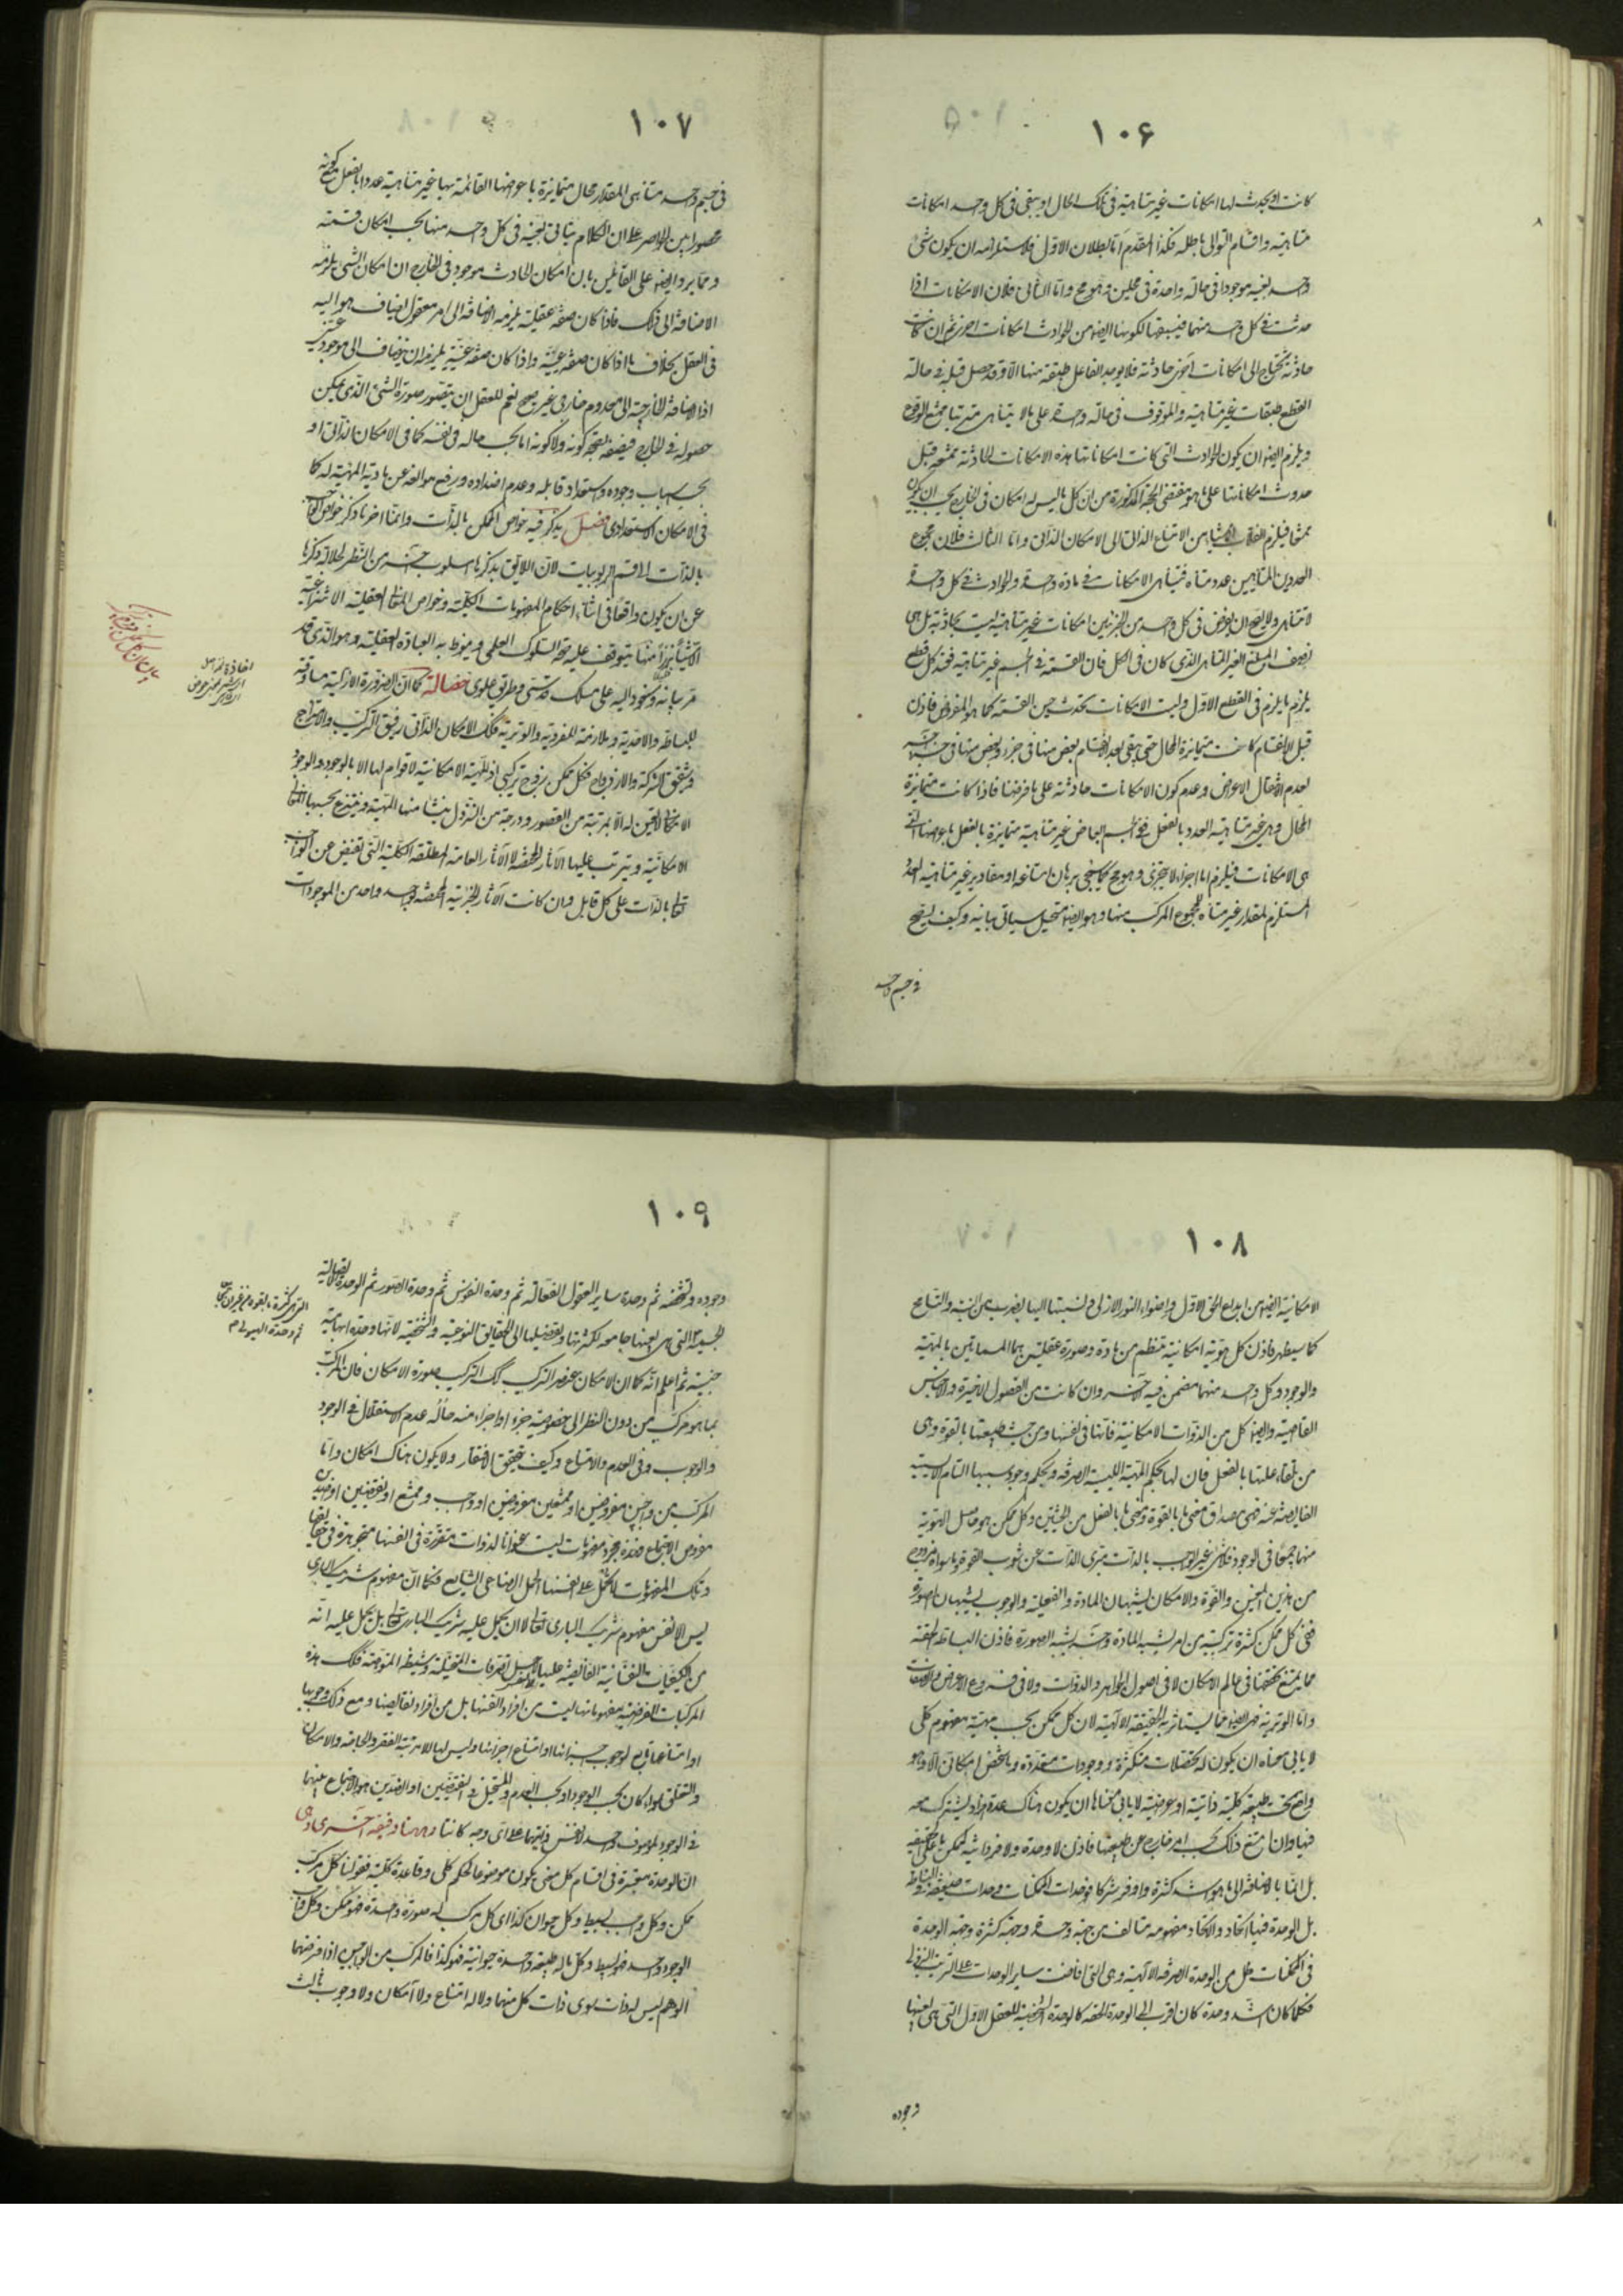 ١٠۶
كانت او يحدث لها امكانات غير متناهية فى تلك الحال او يبقى فى كل واحد امكانات
متناهية واقسام التوالى باطلة فكذا المقدم اما بطلان الاول فلاستلزامه ان يكون شئ
واحد بعينه موجودا فى حالة واحدة فى محلين وهو مح واما الثانى فلان الامكانات اذا
حدثت فى كل واحد منهما فيسبقها لكونها ايضا من الحوادث امكانات اخرى ثم ان كانت
حادثة تحتاج الى امكانات اخرى حادثة فلا يوجد الفاعل طبقة منها الا وقد حصل قبله فى حالة
القطع طبقات غير متناهية والموقوف فى حالة واحدة على ما لا يتناهى مترتبا ممتنع الوقوع
ويلزم ايضا ان يكون الحوادث التى كانت امكاناتها هذه الامكانات الحادثة ممتنعة قبل
حدوث امكاناتها على ما هو مقتضى الحجة المذكورة من ان كل ما ليس له امكان فى الخارج يجب ان يكون
ممتنعا فيلزم انقلاب الاشياء من الامتناع الذاتى الى الامكان الذاتى واما الثالث فلان مجموع
العددين المتناهيين عدد متناه فيتناهى الامكانات فى مادة واحدة والحوادث فى كل واحدة
لا تتناهى ولا يصح ان يعرض فى كل واحد من الجزئين امكانات غير متناهية ليست بحادثة بل هى
نصف المبلغ الغير المتناهى الذى كان فى الكل فان القسمة فى الجسم غير متناهية فعند كل قطع
يلزم ما يلزم فى القطع الاول وليست الامكانات تحدث حين القسمة كما هو المفروض فاذن
قبل الانقسام كانت متمايزة المحال حتى يبقى بعد الانقسام بعض منها فى جزء وبعض منها فى جزء اخر
لعدم انتقال الاعراض وعدم كون الامكانات حادثة على ما فرضنا فاذا كانت متمايزة
المحال وهى غير متناهية العدد بالفعل ففى الجسم ابعاض غير متناهية متمايزة بالفعل باعراضها التى
هى الامكانات فيلزم اما اجزاء لا يتجزى وهو مح كما سيجئ برهان امتناعه او مقادير غير متناهية العدد
المستلزم لمقدار غير متناه للمجموع المركب منها وهو ايضا مستحيل سياتى بيانه وكيف يصح
فى جسم واحد
١٠٧
فى جسم واحد متناهى المقدار محال متمايزة باعراضها القائمة بها غير متناهية عددا بالفعل مع كونه
محصورا بين الحواصر على ان الكلام يتاتى بعينه فى كل واحد منها بحسب امكان قسمته
ومما يرد ايضا على القائلين بان امكان الحادث موجود فى الخارج ان امكان الشئ يلزمه
الاضافة الى ذلك فاذا كان صفة عقلية يلزمه الاضافة الى امر معقول يضاف هو اليه
فى العقل بخلاف ما اذا كان صفة عينية واذا كان صفة عينية يلزمه ان يضاف الى موجود عينى
اذ الاضافة الخارجية الى معدوم خارجى غير صحيح نعم للعقل ان يتصور صورة الشئ الذى يمكن
حصوله فى الخارج فيصفه بصحة كونه ولا كونه اما بحسب حاله فى نفسه كما فى الامكان الذاتى او
بحسب اسباب وجوده واستعداد قابله وعدم اضداده ورفع موانعه عن مادته المتهيئة له كما
فى الامكان الاستعدادى فصل يذكر فيه خواص الممكن بالذات وانما اخرنا ذكر خواص الواجب
بالذات الى قسم الربوبيات لان اللايق بذكرها اسلوب اخر من النظر لجلالة ذكرها
عن ان يكون واقعا فى اثناء احكام المفهومات الكلية وخواص المعانى العقلية الانتزاعية
الا شيئا نزرا منها يتوقف عليه صحة السلوك العلمى وينوط به العبادة العقلية وهو الذى قد
مر بيانه وسنعود اليه على مسلك قدسى وطريق علوى فصالة كما ان الضرورة الازلية مساوقة
للبساطة والاحدية وملازمة للفردية والوترية فكذلك الامكان الذاتى رفيق التركيب والامتزاج
وشقيق الشركة والازدواج فكل ممكن زوج تركيبى اذ المهية الامكانية لا قوام لها الا بالوجود والوجود
الامكانى لا تعين له الا بمرتبة من القصور ودرجة من النزول ينشا منها المهية وينتزع بحسبها المعانى
الامكانية ويترتب عليها الآثار المختصة لا الآثار العامة المطلقة الكلية التى تفيض عن الواجب
تعالى بالذات على كل قابل وان كانت الآثار الجزئية المختصة بواحد واحد من الموجودات
١٠٨
الامكانية ايضا من ابداع الحق الاول واضواء النور الازلى ونسبتها اليها بضرب من التشبه والتسامح
كما سيظهر فاذن كل هوية امكانية ينتظم من مادة وصورة عقليتين هما المسماتين بالمهية
والوجود وكل واحد منهما مضمن فيه الآخر وان كانت من الفصول الاخيرة والاجناس
القاصية وايضا كل من الذوات الامكانية فانها فى نفسها ومن حيث طبيعتها بالقوة وهى
من تلقاء علتها بالفعل فان لها بحكم المهية الليسية الصرفة وبحكم وجود سببها التام الايسية
الفايضة عنه فهى مصداق معنى ما بالقوة ومعنى ما بالفعل من الحيثيتين وكل ممكن هو حاصل الهوية
منهما جميعا فى الوجود فلا شئ غير الواجب بالذات متبرى الذات عن شوب القوة وما سواه مزدوج
من هذين المعنيين والقوة والامكان يشبهان المادة والفعلية والوجوب يشبهان الصورة
ففى كل ممكن كثرة تركيبية من امر يشبه المادة وآخر يشبه الصورة فاذن البساطة الحقة
مما يمتنع تحققها فى عالم الامكان لا فى اصول الجواهر والذوات ولا فى فروع الاعراض والصفات
واما الوترية فهى ايضا مما يستاثر به الحقيقة الالهية لان كل ممكن بحسب مهيته مفهوم كلى
لا يابى معناه ان يكون له تحصلات متكثرة ووجودات متعددة وما شخص امكانى الا وهو
واقع تحت طبيعة كلية ذاتية او عرضية لا يابى معناها ان يكون هناك عدة افراد يشترك معه
فيها وان امتنع ذلك بحسب امر خارج عن طبيعتها فاذن لا وحدة ولا فردانية لممكن ما على الحقيقة
بل انما بالاضافة الى ما هو اشد كثرة واوفر شركا فوحدات الممكنات وحدات ضعيفة البساطة
بل الوحدة فيها اتحاد والاتحاد مفهومه متالف من جهة وحدة وجهة كثرة وجهة الوحدة
فى الممكنات ظل من الوحدة الصرفة الالهية وهى التى افاضت ساير الوحدات على الترتيب النزولى
فكلما كان اشد وحدة كان اقرب الى الوحدة الحقة كالوحدة الشخصية للعقل الاول التى هى بعينها
وجوده
١٠٩
وجوده وتشخصه ثم وحدة ساير العقول الفعالة ثم وحدة النفوس ثم وحدة الصور ثم الوحدة الاتصالية
الجسمية التى هى بعينها جامعة لكثرتها وتفصيلها الى الحقايق النوعية والشخصية لانها وحدة ابهامية
جنسية ثم اعلم انه كما ان الامكان عنصر التركيب كذلك التركيب صورة الامكان فان المركب
بما هو مركب من دون النظر الى خصوصية جزء او اجزاء منه حاله عدم الاستقلال فى الوجود
والوجوب وفى العدم والامتناع وكيف يتحقق الافتقار ولا يكون هناك امكان واما
المركب من واجبين مفروضين او ممتنعين مفروضين او واجب وممتنع او نقيضين او ضدين
مفروض الاجتماع فهذه مجرد مفهومات ليست عنوانا لذوات متقررة فى انفسها متجوهرة فى حقايقها
وتلك المفهومات لا تحمل على انفسها بالحمل الصناعى الشايع فكما ان مفهوم شريك البارى
ليس الا نفس مفهوم شريك البارى تعالى لا ان يحمل عليه شريك البارى تعالى بل يحمل عليه انه
من الكيفيات النفسانية الفايضة عليها لاجل تصرفات المتخيلة وشيطنة المتوهمة فكذلك هذه
المركبات الفرضية مفهوماتها ليست من افراد انفسها بل من افراد نقايضها ومع ذلك وجوبها
او امتناعها تابع لوجوب اجزائها او امتناع اجزائها وليس لها الا مرتبة الفقر والحاجة والامكان
والتعلق سواء كان بحسب الوجود او بحسب العدم والمستحيل فى النقيضين او الضدين هو الاجتماع بينهما
فى الوجود لموصوف واحد لا نفس ذاتيهما على اى وجه كانتا وههنا دقيقة اخرى وهى
ان الوحدة معتبرة فى اقسام كل معنى يكون موضوعا لحكم كلى وقاعدة كلية فقولنا كل مركب
ممكن وكل واجب بسيط وكل حيوان كذا اى كل مركب له صورة واحدة فهو ممكن وكل واجب
الوجود واحد فهو بسيط وكل ما له طبيعة واحدة حيوانية فهو كذا فالمركب من الواجبين اذا فرضهما
الوهم ليس له ذات سوى ذات كل منهما ولا له امتناع ولا امكان ولا وجوب ثالث